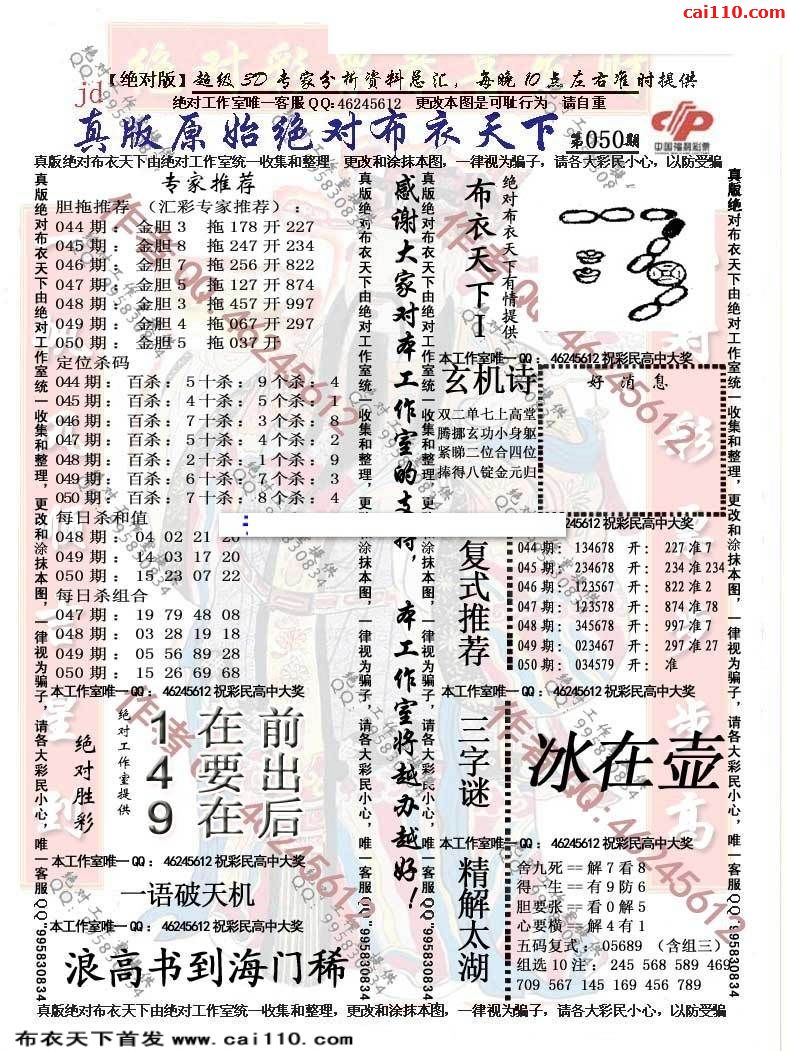 cai110.com
【绝对版】超级3D专家分析资料总汇，每晚10点左右准时提供
jd
绝对工作室唯一客服QQ:46245612 更改本图是可耻行为 请自重
真版原始绝对布衣天下 第050期
中国福利彩票
真版绝对布衣天下由绝对工作室统一收集和整理，更改和涂抹本图，一律视为骗子，请各大彩民小心，以防受骗
专家推荐
胆拖推荐 （汇彩专家推荐）：
044期： 金胆3 拖178开227
045期： 金胆8 拖247开234
046期： 金胆7 拖256开822
047期： 金胆5 拖127开874
048期： 金胆3 拖457开997
049期： 金胆4 拖067开297
050期： 金胆5 拖037开
定位杀码
044期： 百杀：5十杀：9个杀：4
045期： 百杀：4十杀：5个杀：1
046期： 百杀：7十杀：3个杀：8
047期： 百杀：5十杀：4个杀：2
048期： 百杀：2十杀：1个杀：9
049期： 百杀：6十杀：7个杀：3
050期： 百杀：7十杀：8个杀：4
每日杀和值
048期： 04 02 21 20
049期： 14 03 17 20
050期： 15 23 07 22
每日杀组合
047期： 19 79 48 08
048期： 03 28 19 18
049期： 05 56 89 28
050期： 15 26 69 68
本工作室唯一QQ：46245612祝彩民高中大奖
绝对胜彩
绝对工作室提供
1在前
4要出
9在后
本工作室唯一QQ：46245612祝彩民高中大奖
一语破天机
本工作室唯一QQ：46245612祝彩民高中大奖
浪高书到海门稀
感谢大家对本工作室的支持，本工作室将越办越好！
布衣天下I
绝对布衣天下有情提供
本工作室唯一QQ：46245612祝彩民高中大奖
玄机诗
双二单七上高堂
腾挪玄功小身躯
紧睇二位合四位
捧得八锭金元归
好消息
46245612祝彩民高中大奖
复式推荐
044期： 134678 开： 227准7
045期： 234678 开： 234准234
046期： 123567 开： 822准2
047期： 123578 开： 874准78
048期： 345678 开： 997准7
049期： 023467 开： 297准27
050期： 034579 开： 准
本工作室唯一QQ：46245612祝彩民高中大奖
三字谜
冰在壶
本工作室唯一QQ：46245612祝彩民高中大奖
精解太湖
舍九死==解7看8
得一生==有9防6
胆要张==看0解5
心要横==解4有1
五码复式：05689 （含组三）
组选10注：245 568 589 469
709 567 145 169 456 789
真版绝对布衣天下由绝对工作室统一收集和整理，更改和涂抹本图，一律视为骗子，请各大彩民小心，以防受骗
真版绝对布衣天下由绝对工作室统一收集和整理，更改和涂抹本图，一律视为骗子，请各大彩民小心，唯一客服QQ"995830834
布衣天下首发 www.cai110.com